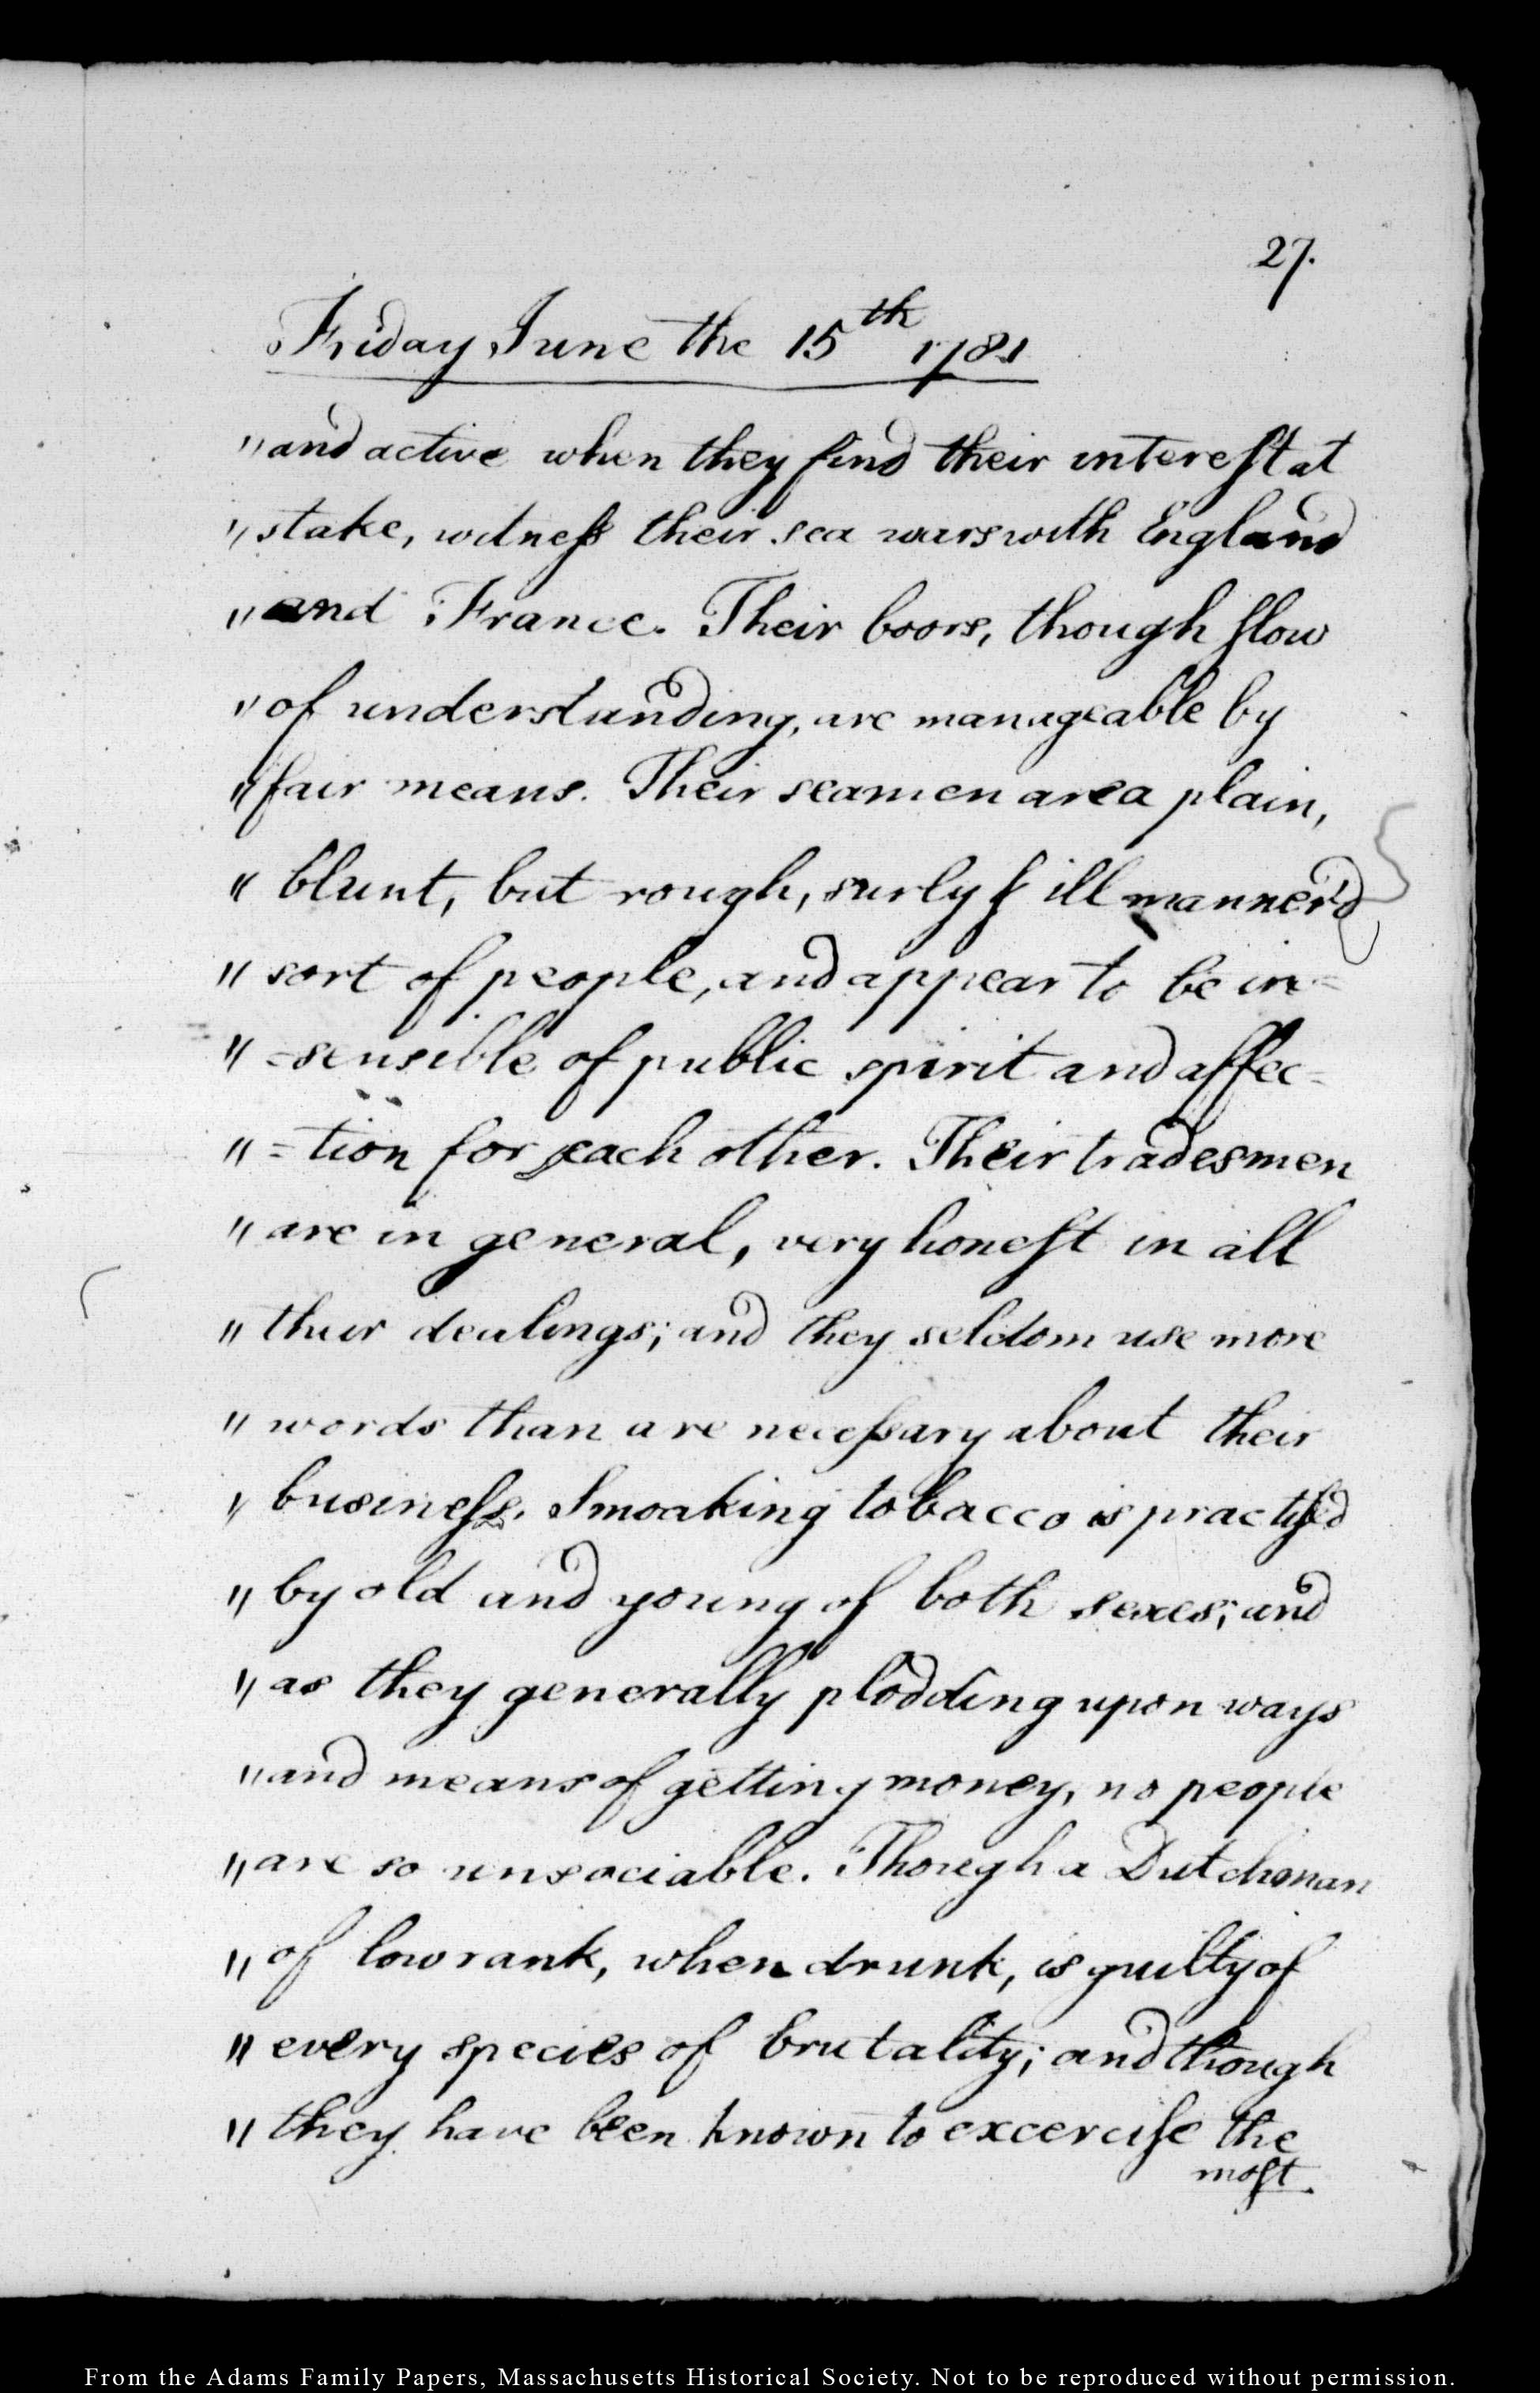 27.
Friday June the 15th 1781
" and active when they find their interest at
" stake, witness their sea wars with England
" and France. Their boors, though slow
" of understanding, are manageable by
" fair means. Their seamen are a plain,
" blunt, but rough, surly & ill manner'd
" sort of people, and appear to be in=
" =sensible of public spirit and affec=
" =tion for each other. Their tradesmen
" are in general, very honest in all
" their dealings; and they seldom use more
" words than are necessary about their
" business. Smoaking tobacco is practised
" by old and young of both sexes; and
" as they generally plodding upon ways
" and means of getting money, no people
" are so unsociable. Though a Dutchman
" of low rank, when drunk, is guilty of
" every species of brutality; and though
" they have been known to excercise the
most
From the Adams Family Papers, Massachusetts Historical Society. Not to be reproduced without permission.